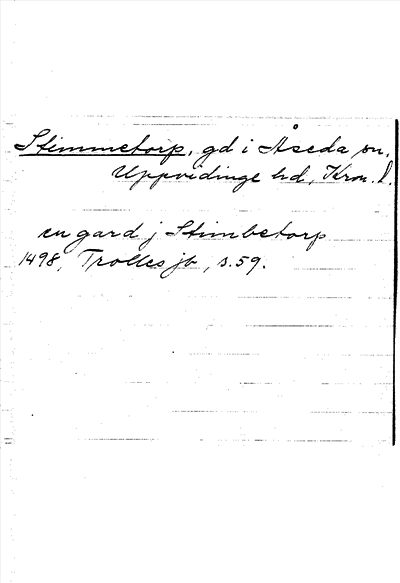 Stimmetorp, gd i Åseda sn,
Uppvidinge hd, Kron. l.
en gard j Stimbetorp
1498, Trolles jb, s. 59.